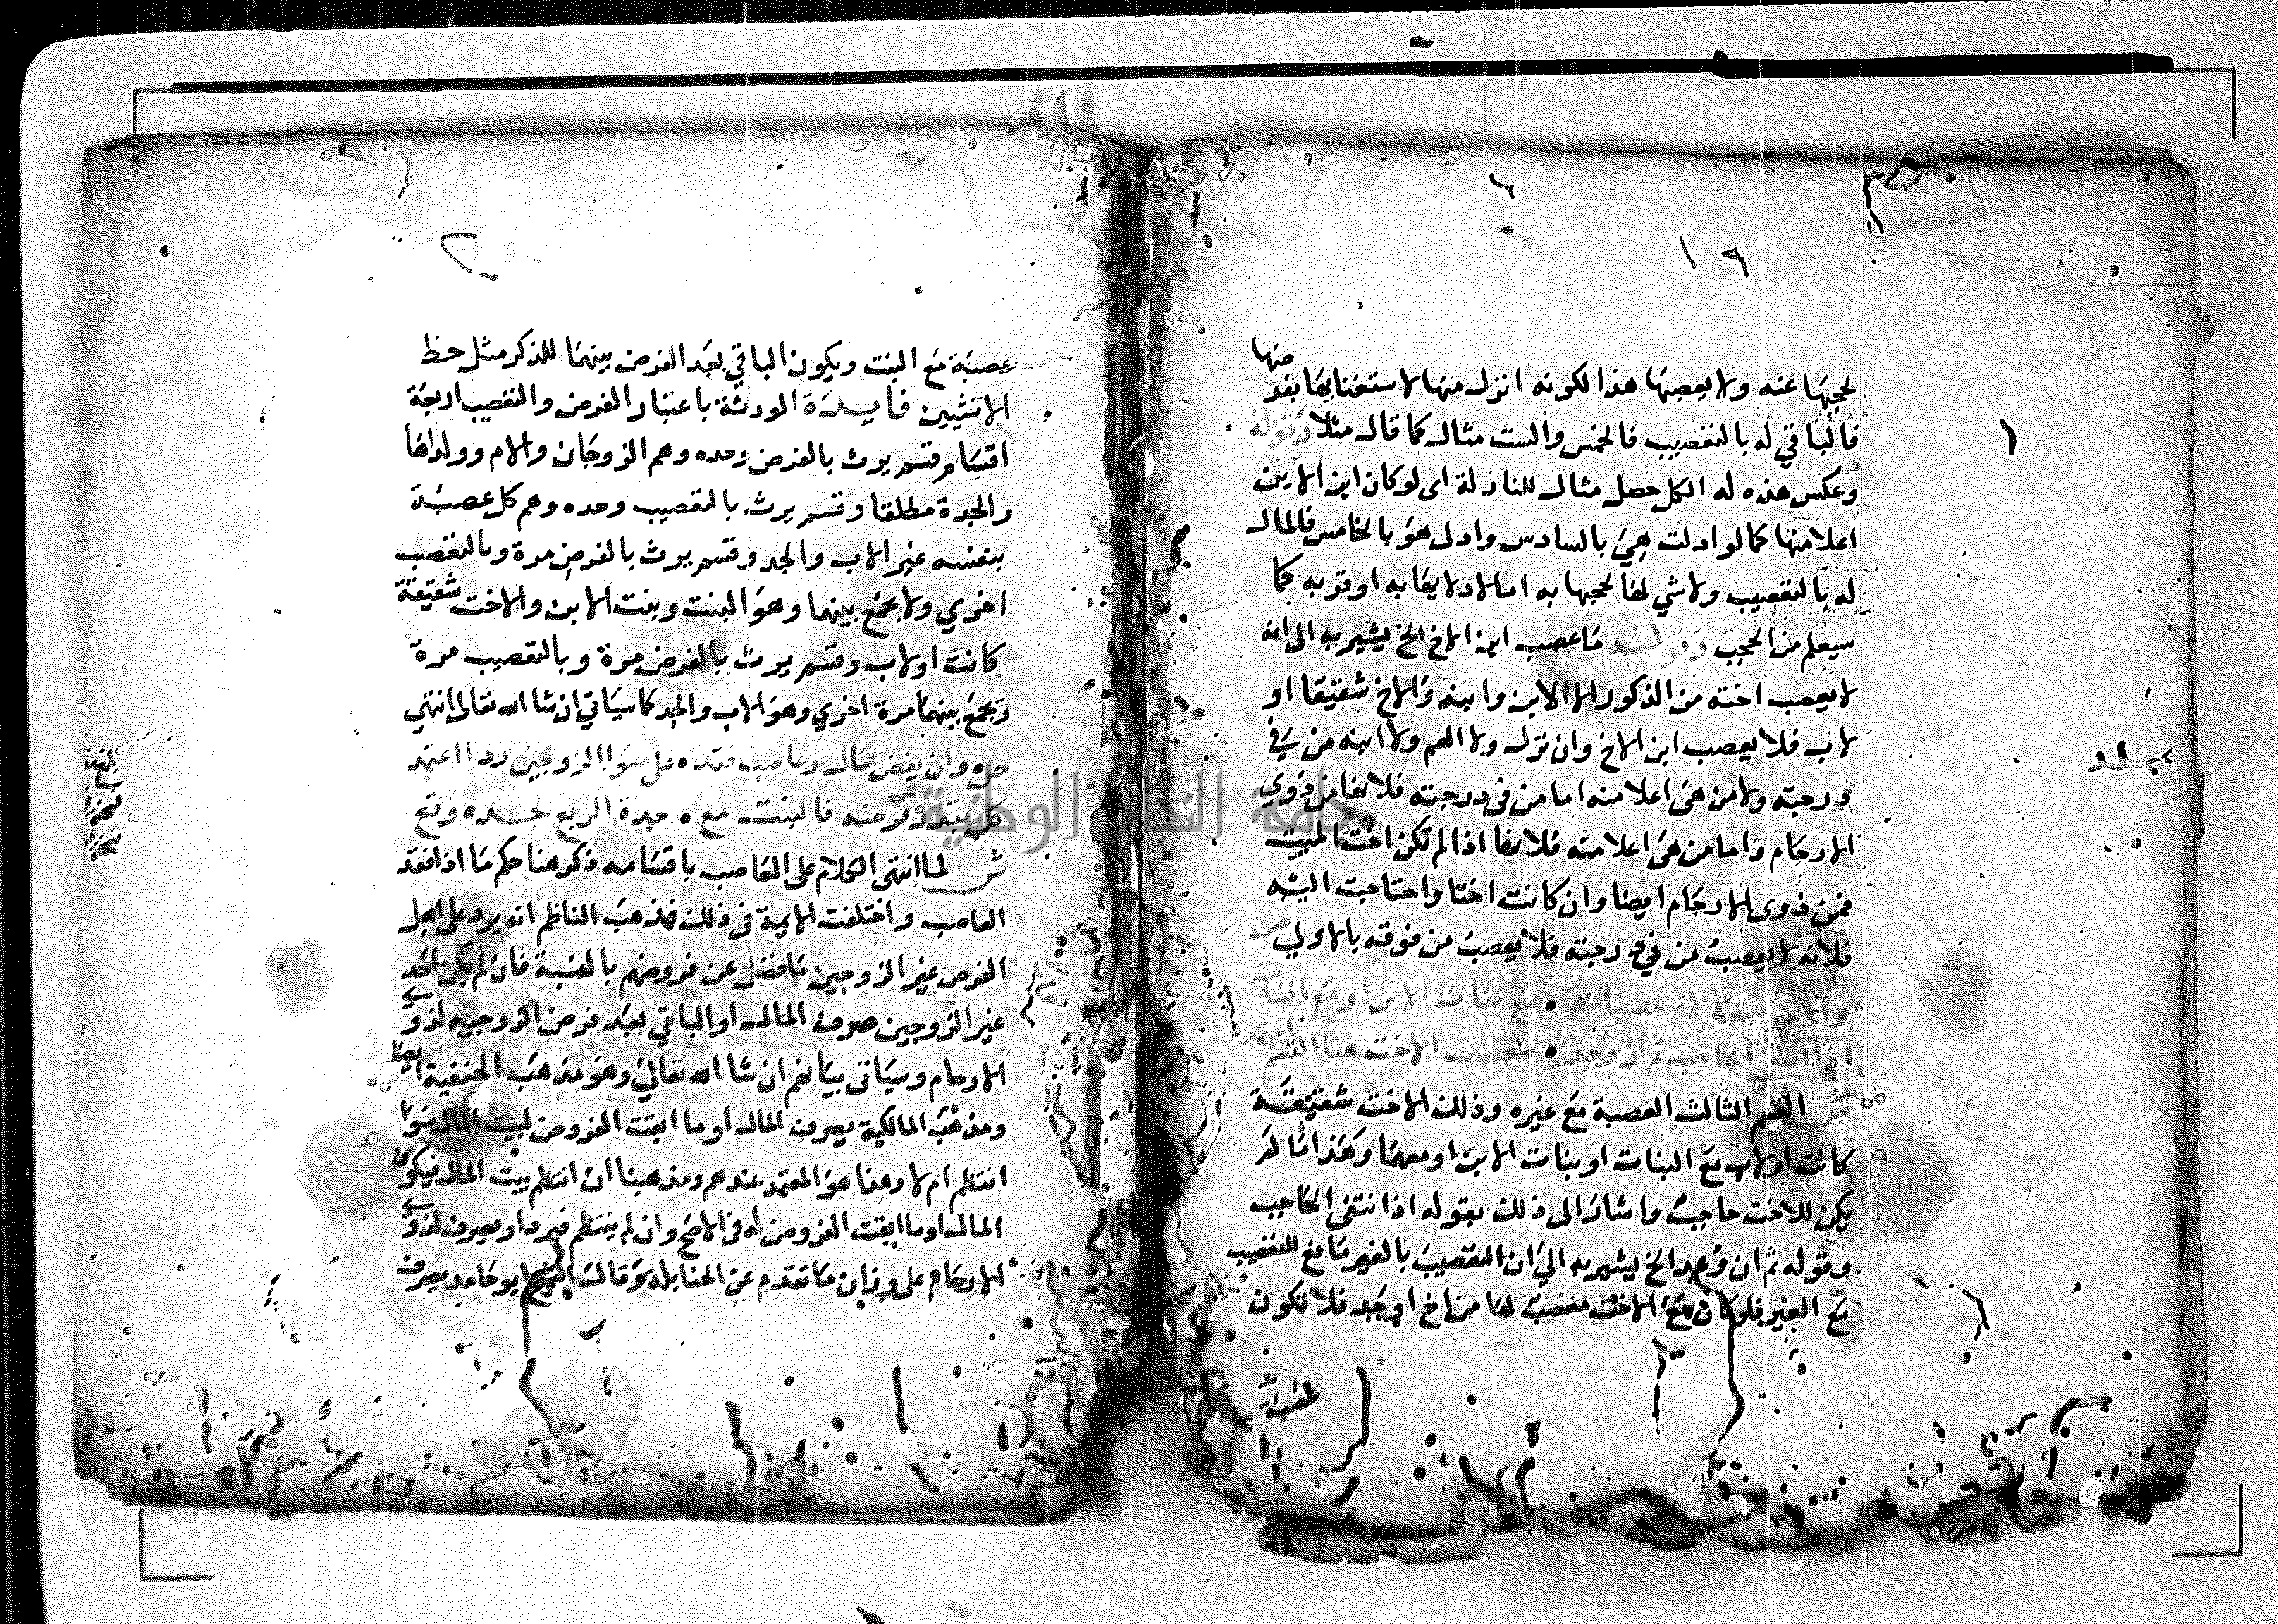 ١٩
يحجبها عنه ولا يعصبها هذا لكونه انزل منها لاستغنايها بفد منها
فالباقي له بالتعصيب فالخمس والست مثال كما قال مثلا وقوله
وعكس هذه له الكل حصل مثال للنازلة اى لو كان ابن الابن
اعلا منها كما لو ادلت هي بالسادس وادلى هو بالخامس فالمال
له بالتعصيب ولا شي لها لحجبها به اما لادلايها به او قربه كما
سيعلم من الحجب وقوله ما عصب ابن الاخ الخ يشير به الى انه
لا يعصب اخته من الذكور الا الابن وابنه والاخ شقيقا او
لاب فلا يعصب ابن الاخ وان نزل ولا العم ولا ابنه من في
درجته ولا من هى اعلا منه اما من فى درجته فلانها من ذوي
الارحام واما من هى اعلا منه فلانها اذا لم تكن اخت الميت
فمن ذوى الارحام ايضا وان كانت اختا واحتاجت اليه
فلانه لا يعصب من في درجته فلا يعصب من فوقه بالاولى
مع بنات الابن او مع البنات
ثم ان وجد معصب الاخت هنا القسم
القسم الثالث العصبة مع غيره وذلك الاخت شقيقة
كانت او لاب مع البنات او بنات الابن او معهما وهذا ما لم
يكن للاخت حاجب واشار الى ذلك بقوله اذا انتفى الحاجب
وقوله ثم ان وجد الخ يشير به الي ان التعصيب بالغير مانع للتعصيب
مع الغير فلو كان مع الاخت معصب لها من اخ او جد فلا تكون
عصبة مع البنت ويكون الباقي بعد الفرض بينهما للذكر مثل حظ
الانثيين فايدة الورثة باعتبار الفرض والتعصيب اربعة
اقسام قسم يرث بالفرض وحده وهم الزوجان والام وولداها
والجدة مطلقا وقسم يرث بالتعصيب وحده وهم كل عصبة
بنفسه غير الاب والجد وقسم يرث بالفرض مرة وبالتعصيب
اخري ولا يجمع بينهما وهو البنت وبنت الابن والاخت شقيقة
كانت او لاب وقسم يرث بالفرض مرة وبالتعصيب مرة
ويجمع بينهما مرة اخري وهو الاب والجد كما سياتي ان شا الله تعالى انتهى
ص وان يفض مال وعاصب فقد على سوا الزوجين ردا اعتمد
فالبنت مع جدة الربع
ش لما انتهى الكلام على العاصب باقسامه ذكر هنا حكم ما اذا فقد
العاصب واختلفت الايمة فى ذلك فمذهب الناظم انه يرد على اهل
الفرض غير الزوجين ما فضل عن فروضهم بالنسبة فان لم يكن احد
غير الزوجين صرف المال او الباقي بعد فرض الزوجيه لذوي
الارحام وسياتى بيانهم ان شا الله تعالى وهو مذهب الحنفية ايضا
ومذهب المالكية يصرف المال او ما ابقت الفروض لبيت المال سوا
انتظم ام لا وهذا هو المعتمد عندهم ومذهبنا ان انتظم بيت المال فيكون
المال او ما ابقت الفروض له فى الاصح وان لم ينتظم فيرد او يصرف لذوي
الارحام على وزان ما تقدم عن الحنابلة وقال الشيخ ابو حامد يصرف